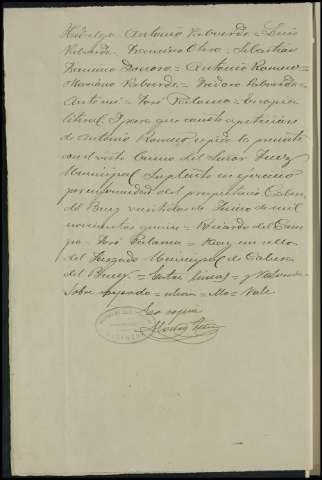 Hidalgo Antonio Valverde = Luis
Valverde. Francisco Oliva = Sebastian
Francisco Donoso = Antonio Romero =
Mariano Valverde = Teodoro Valverde =
Antonio = José Palanco = Es copia
literal. Y para que conste a peticion
de Antonio Romero expido la presente
con el visto bueno del Señor Juez
Municipal Suplente en ejercicio
por enfermedad del propietario Cabeza
del Buey veintidos de Junio de mil
novecientos quince = Ricardo del Cam
po = José Palanco = Hay un sello
del Juzgado Municipal de Cabeza
del Buey. = Entre lineas = y Valverde
Sobre raspado = = Vale
Es copia